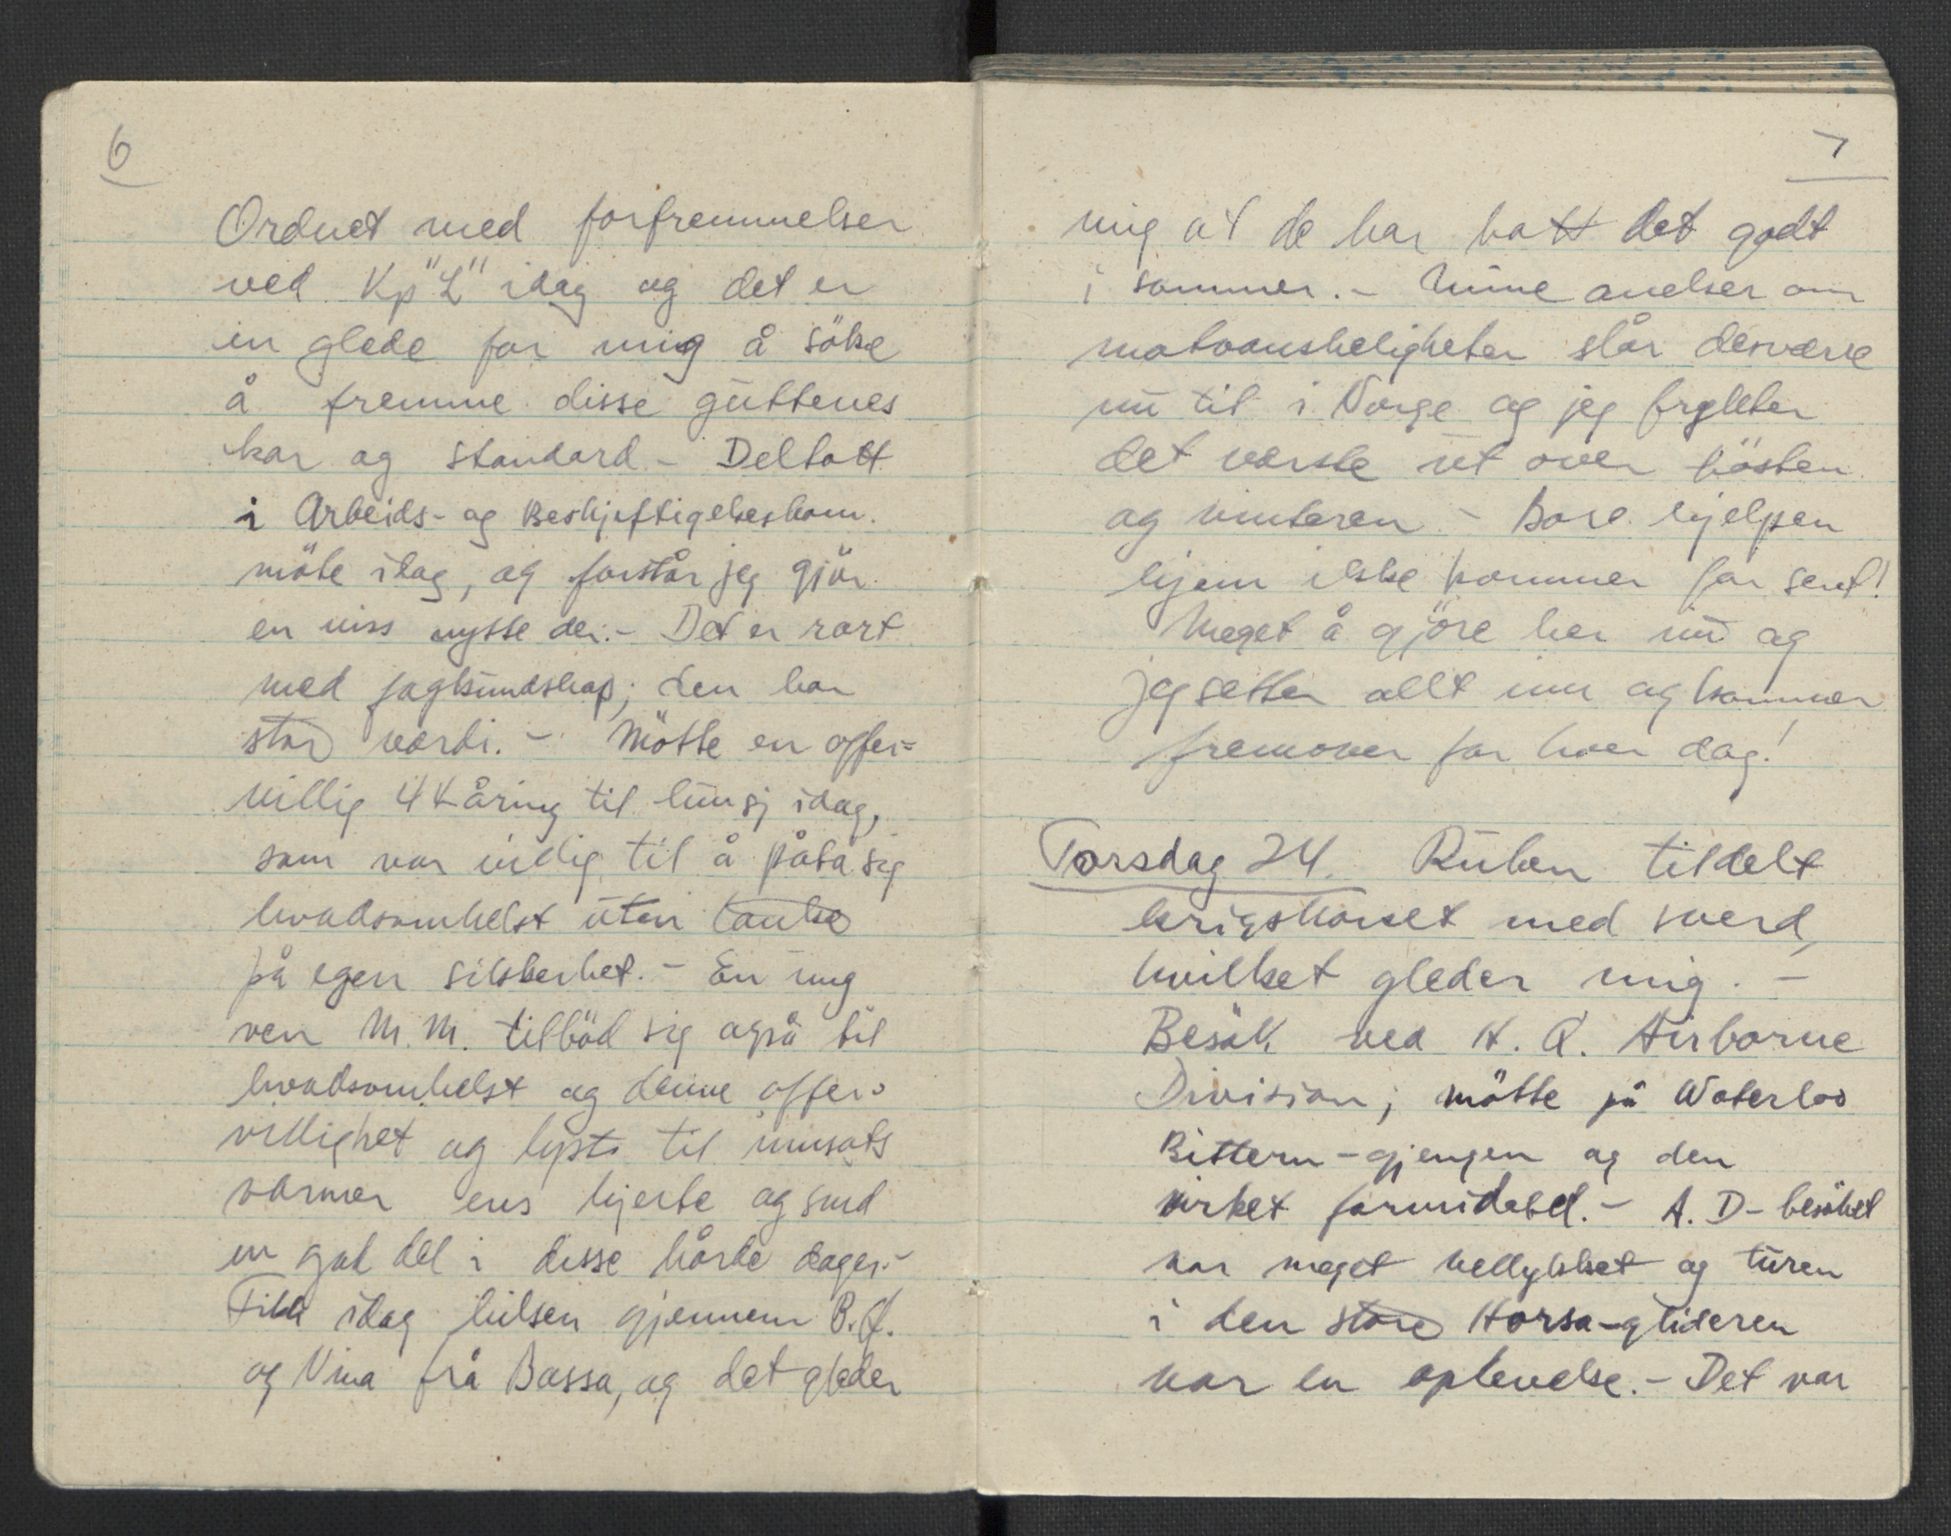 6
Ordnet med forfremmelser
ved Kp "L" idag og det er
en glede for mig å söke
å fremme disse guttenes
kar og standard - Deltatt
i Arbeids- og Beskjeftigelseskom.
möte idag, og forstår jeg gjör
en viss nytte der. - Det er rart
med fagkundskap; den har
stor verdi. - Mötte en offer=
villig 44 åring til lunsj idag,
som var villig til å påta sig
hvadsomhelst uten tanke
på egen sikkerhet. - En ung
ven M. M. tilböd sig også til
hvadsomhelst og denne offer=
villighet og lyst til innsats
varmer ens hjerte og sind
en god del i disse hårde dager. -
Fikk idag hilsen gjennem B. Ø.
og Nina frå Bassa, og det gleder
7
mig at de har hatt det godt
i sommer. - Mine anelser om
matvanskeligheter slår desverre
nu til i Norge og jeg frykter
det verste ut over hösten
og vinteren - Bare hjelpen
hjem ikke kommer for sent!
Meget å gjöre her nu og
jeg setter allt inn og kommer
fremover for hver dag!
Torsdag 24. Ruben tildelt
krigskorset med sverd,
hvilket gleder mig. -
Besök ved H. Q. Airborne
Division; mötte på Waterloo
Bittern-gjengen og den
virket formidabel. - A. D- besöket
var meget vellykket og turen
i den store Horsa-glideren
var en oplevelse. - Det var